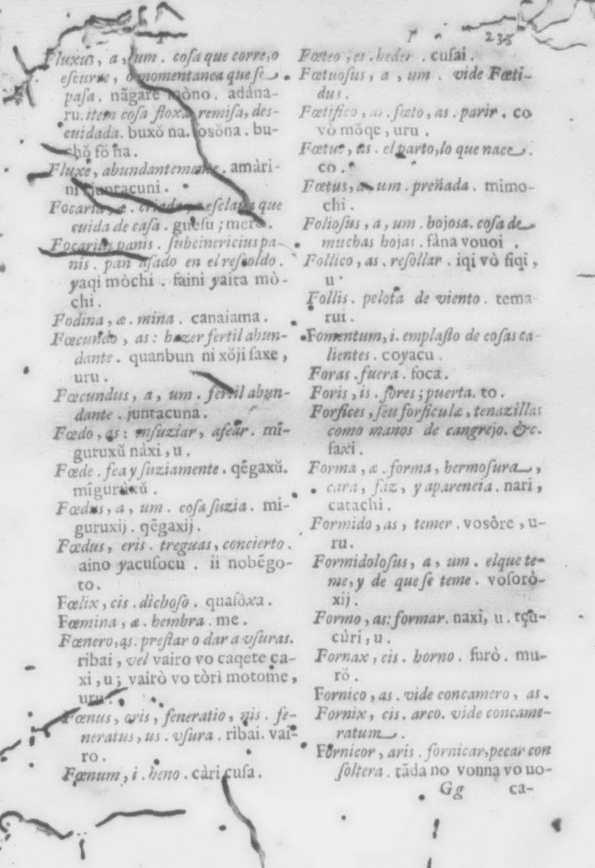 235
Fluxus, a, um. cosa que corre, o
escurre, o momentanea que se
pasa. nāgare mòno. adána-
ru. item cosa floxa, remisa, des-
cuidada. buxŏ na. sosŏna. bu-
chŏ fŏ na.
Fluxe, abundantemante. amàri-
ni juntacuni.
Focaria, æ. criada, esclava que
cuida de casa. guesu; mero.
Focarius panis. subcinericius pa-
nis. pan asado en el rescoldo.
yaqi mòchi. faini yaita mò-
chi.
Fodina, æ. mina. canaiama.
Fœcundo, as: hazer fertil abun-
dante. quanbun ni xŏji saxe,
uru.
Fœcundus, a, um. fertil abun-
dante. juntacuna.
Fœdo, as: insuziar, afear. mī-
guruxŭ nàxi, u.
Fœde. fea y suziamente. qēgaxŭ.
mīguruxŭ.
Fœdus, a, um. cosa suzia. mi-
guruxij. qēgaxij.
Fœdus, eris. treguas, concierto.
aino yacusocu. ii nobēgo-
to.
Fœlix, cis. dichoso. quafŏxa.
Fœmina, æ. hembra. me.
Fœnero, as. prestar o dar a vsuras.
ribai, vel vairo vo caqete ca-
xi, u; vairò vo tòri motome,
uru.
Fœnus, oris, feneratio, nis. fe-
neratus, us. vsura. ribai. vai-
ro.
Fœnum, i. heno. càri cusa.
Fœteo, es. heder. cusai.
Fœtuosus, a, um. vide Fœti-
dus.
Fœtifico, as. fœto, as. parir. co
vò mŏqe, uru.
Fœtus, us. el parto, lo que nace.
co.
Fœtus, a, um. preñada. mimo-
chi.
Foliosus, a, um. hojosa. cosa de
muchas hojas. fàna vouoi.
Follico, as. resollar. iqi vò fiqi,
u.
Follis. pelota de viento. tema-
rui.
Fomentum, i. emplasto de cosas ca-
lientes. coyacu.
Foras. fuera. foca.
Foris, is. fores; puerta. to.
Forfices, seu forficulæ, tenazillas
como manos de cangrejo. &c.
faxi.
Forma, æ. forma, hermosura,
cara, faz, y aparencia. nari,
catachi.
Formido, as, temer. vosôre, u-
ru.
Formidolosus, a, um. el que te-
me, y de que se teme. vosorò-
xij.
Formo, as: formar. naxi, u. tçu-
cùri, u.
Fornax, cis. horno. furò. mu-
rŏ.
Fornico, as. vide concamero, as.
Fornix, cis. arco. vide concame-
ratum.
Fornicor, aris. fornicar, pecar con
soltera. tāda no vonna vo uo-
Gg ca-